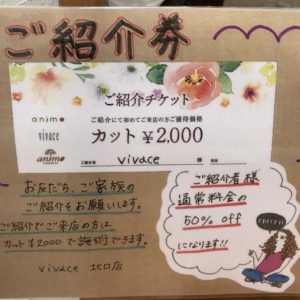 ご紹介券
ご紹介チケット
animo
vivace
animo
ご紹介にて初めてご来店の方ご優待価格
カット ¥2,000
ご紹介者 vivace 様
お友だち、ご家族の
ご紹介をお願いします。
ご紹介でご来店の方は
カット¥2000で施術できます。
vivace 北口店
ご紹介者様
通常料金の
50% off
になります!!